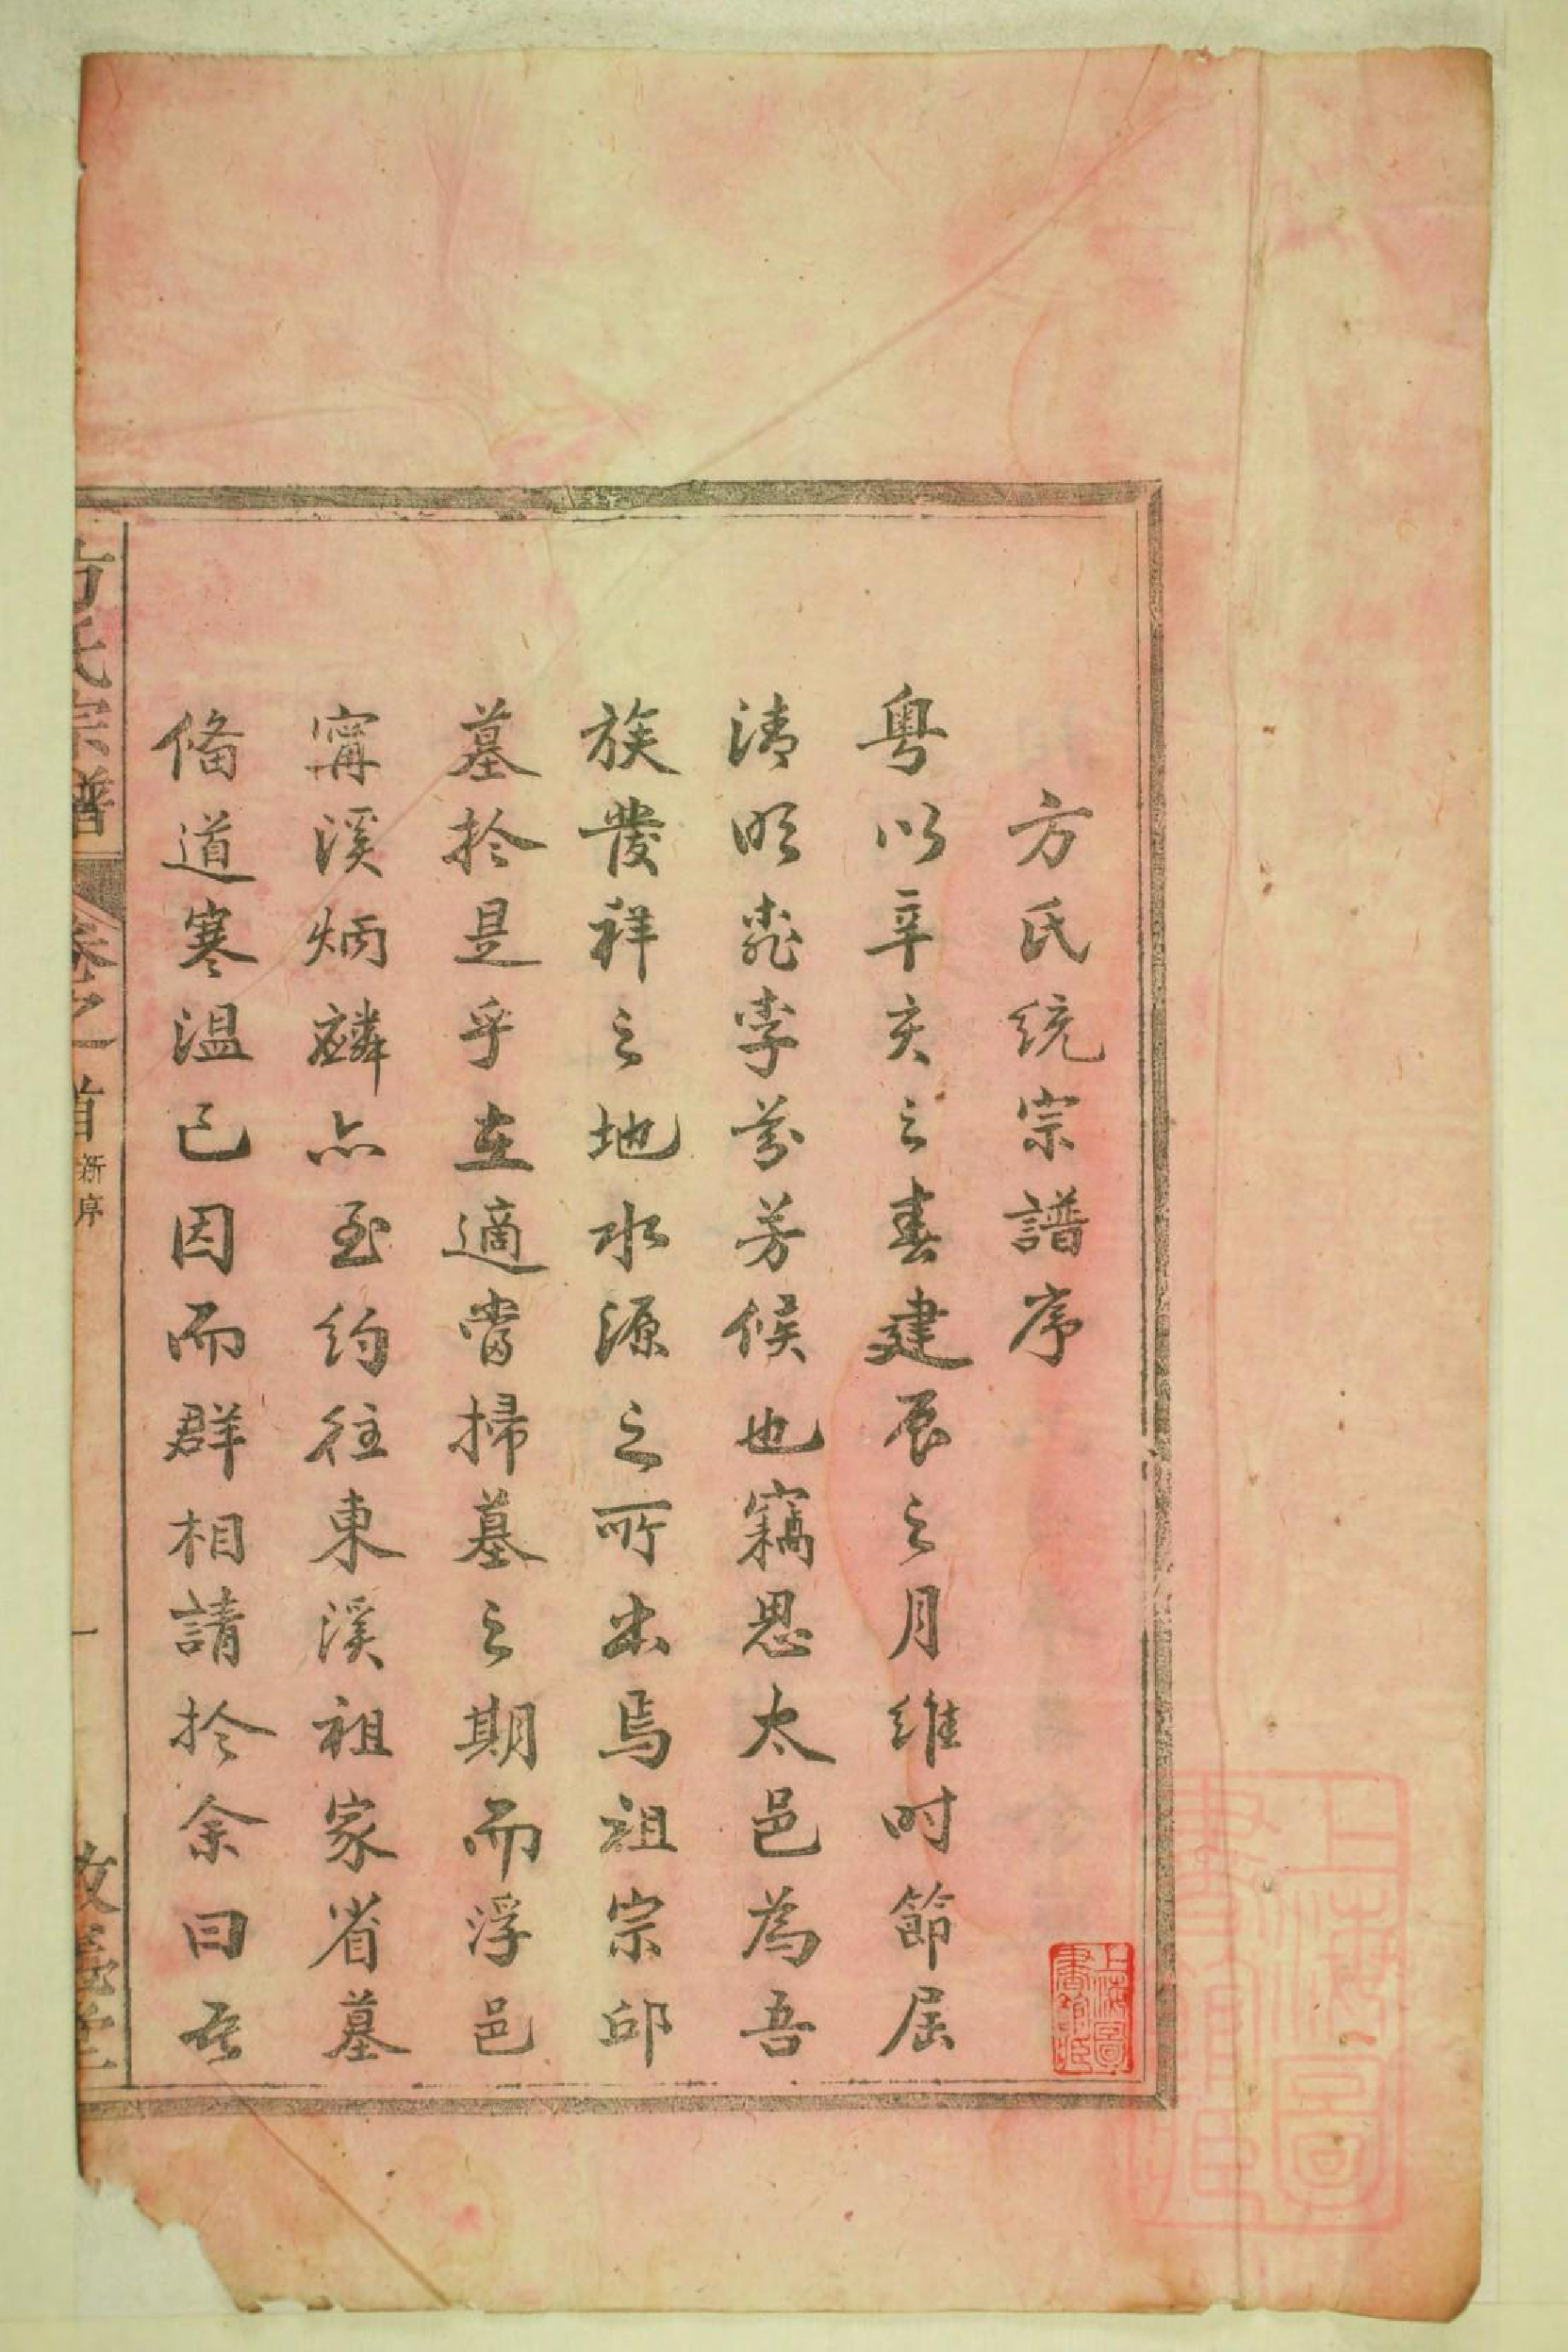 方氏統宗譜序
粵以辛亥之春建辰之月維时節屆
清明桃李芬芳候也竊思太邑為吾
族發祥之地水源之所出焉祖宗邱
墓於是乎在適當掃墓之期而浮邑
甯溪炳麟亦至約往東溪祖家省墓
俻道寒溫已因而群相請於余曰吾
方氏宗譜
卷之一首
新序
一
上海圖書館藏
上海圖書館藏